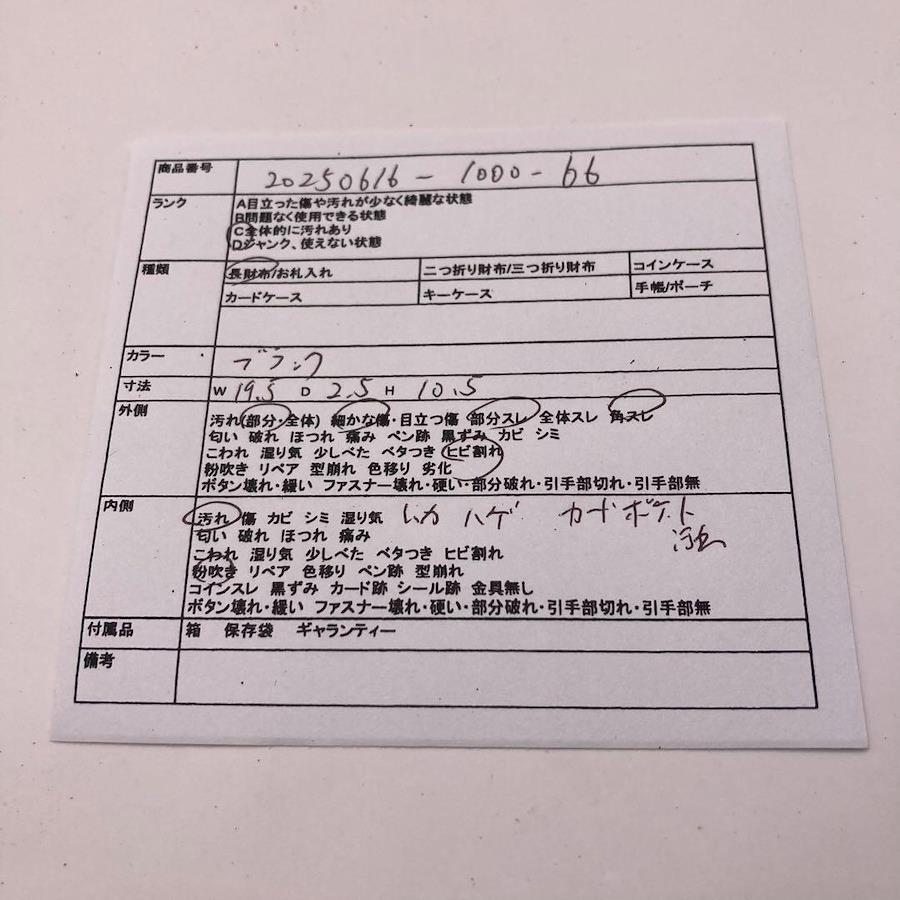 商品番号 20250616-1000-66
ランク A目立った傷や汚れが少なく綺麗な状態
B問題なく使用できる状態
C全体的に汚れあり
Dジャンク、使えない状態
種類 長財布/お札入れ 二つ折り財布/三つ折り財布 コインケース
カードケース キーケース 手帳/ポーチ
カラー ブラック
寸法 W 19.5 D 2.5 H 10.5
外側 汚れ(部分・全体) 細かな傷・目立つ傷 部分スレ 全体スレ 角スレ
匂い 破れ ほつれ 痛み ペン跡 黒ずみ カビ シミ
こわれ 湿り気 少しべた ベタつき ヒビ割れ
粉吹き リペア 型崩れ 色移り 劣化
ボタン壊れ・緩い ファスナー壊れ・硬い・部分破れ・引手部切れ・引手部無
内側 汚れ 傷 カビ シミ 湿り気 ハゲ カードポケット
匂い 破れ ほつれ 痛み
こわれ 湿り気 少しべた ベタつき ヒビ割れ
粉吹き リペア 色移り ペン跡 型崩れ
コインスレ 黒ずみ カード跡 シール跡 金具無し
ボタン壊れ・緩い ファスナー壊れ・硬い・部分破れ・引手部切れ・引手部無
付属品 箱 保存袋 ギャランティー
備考